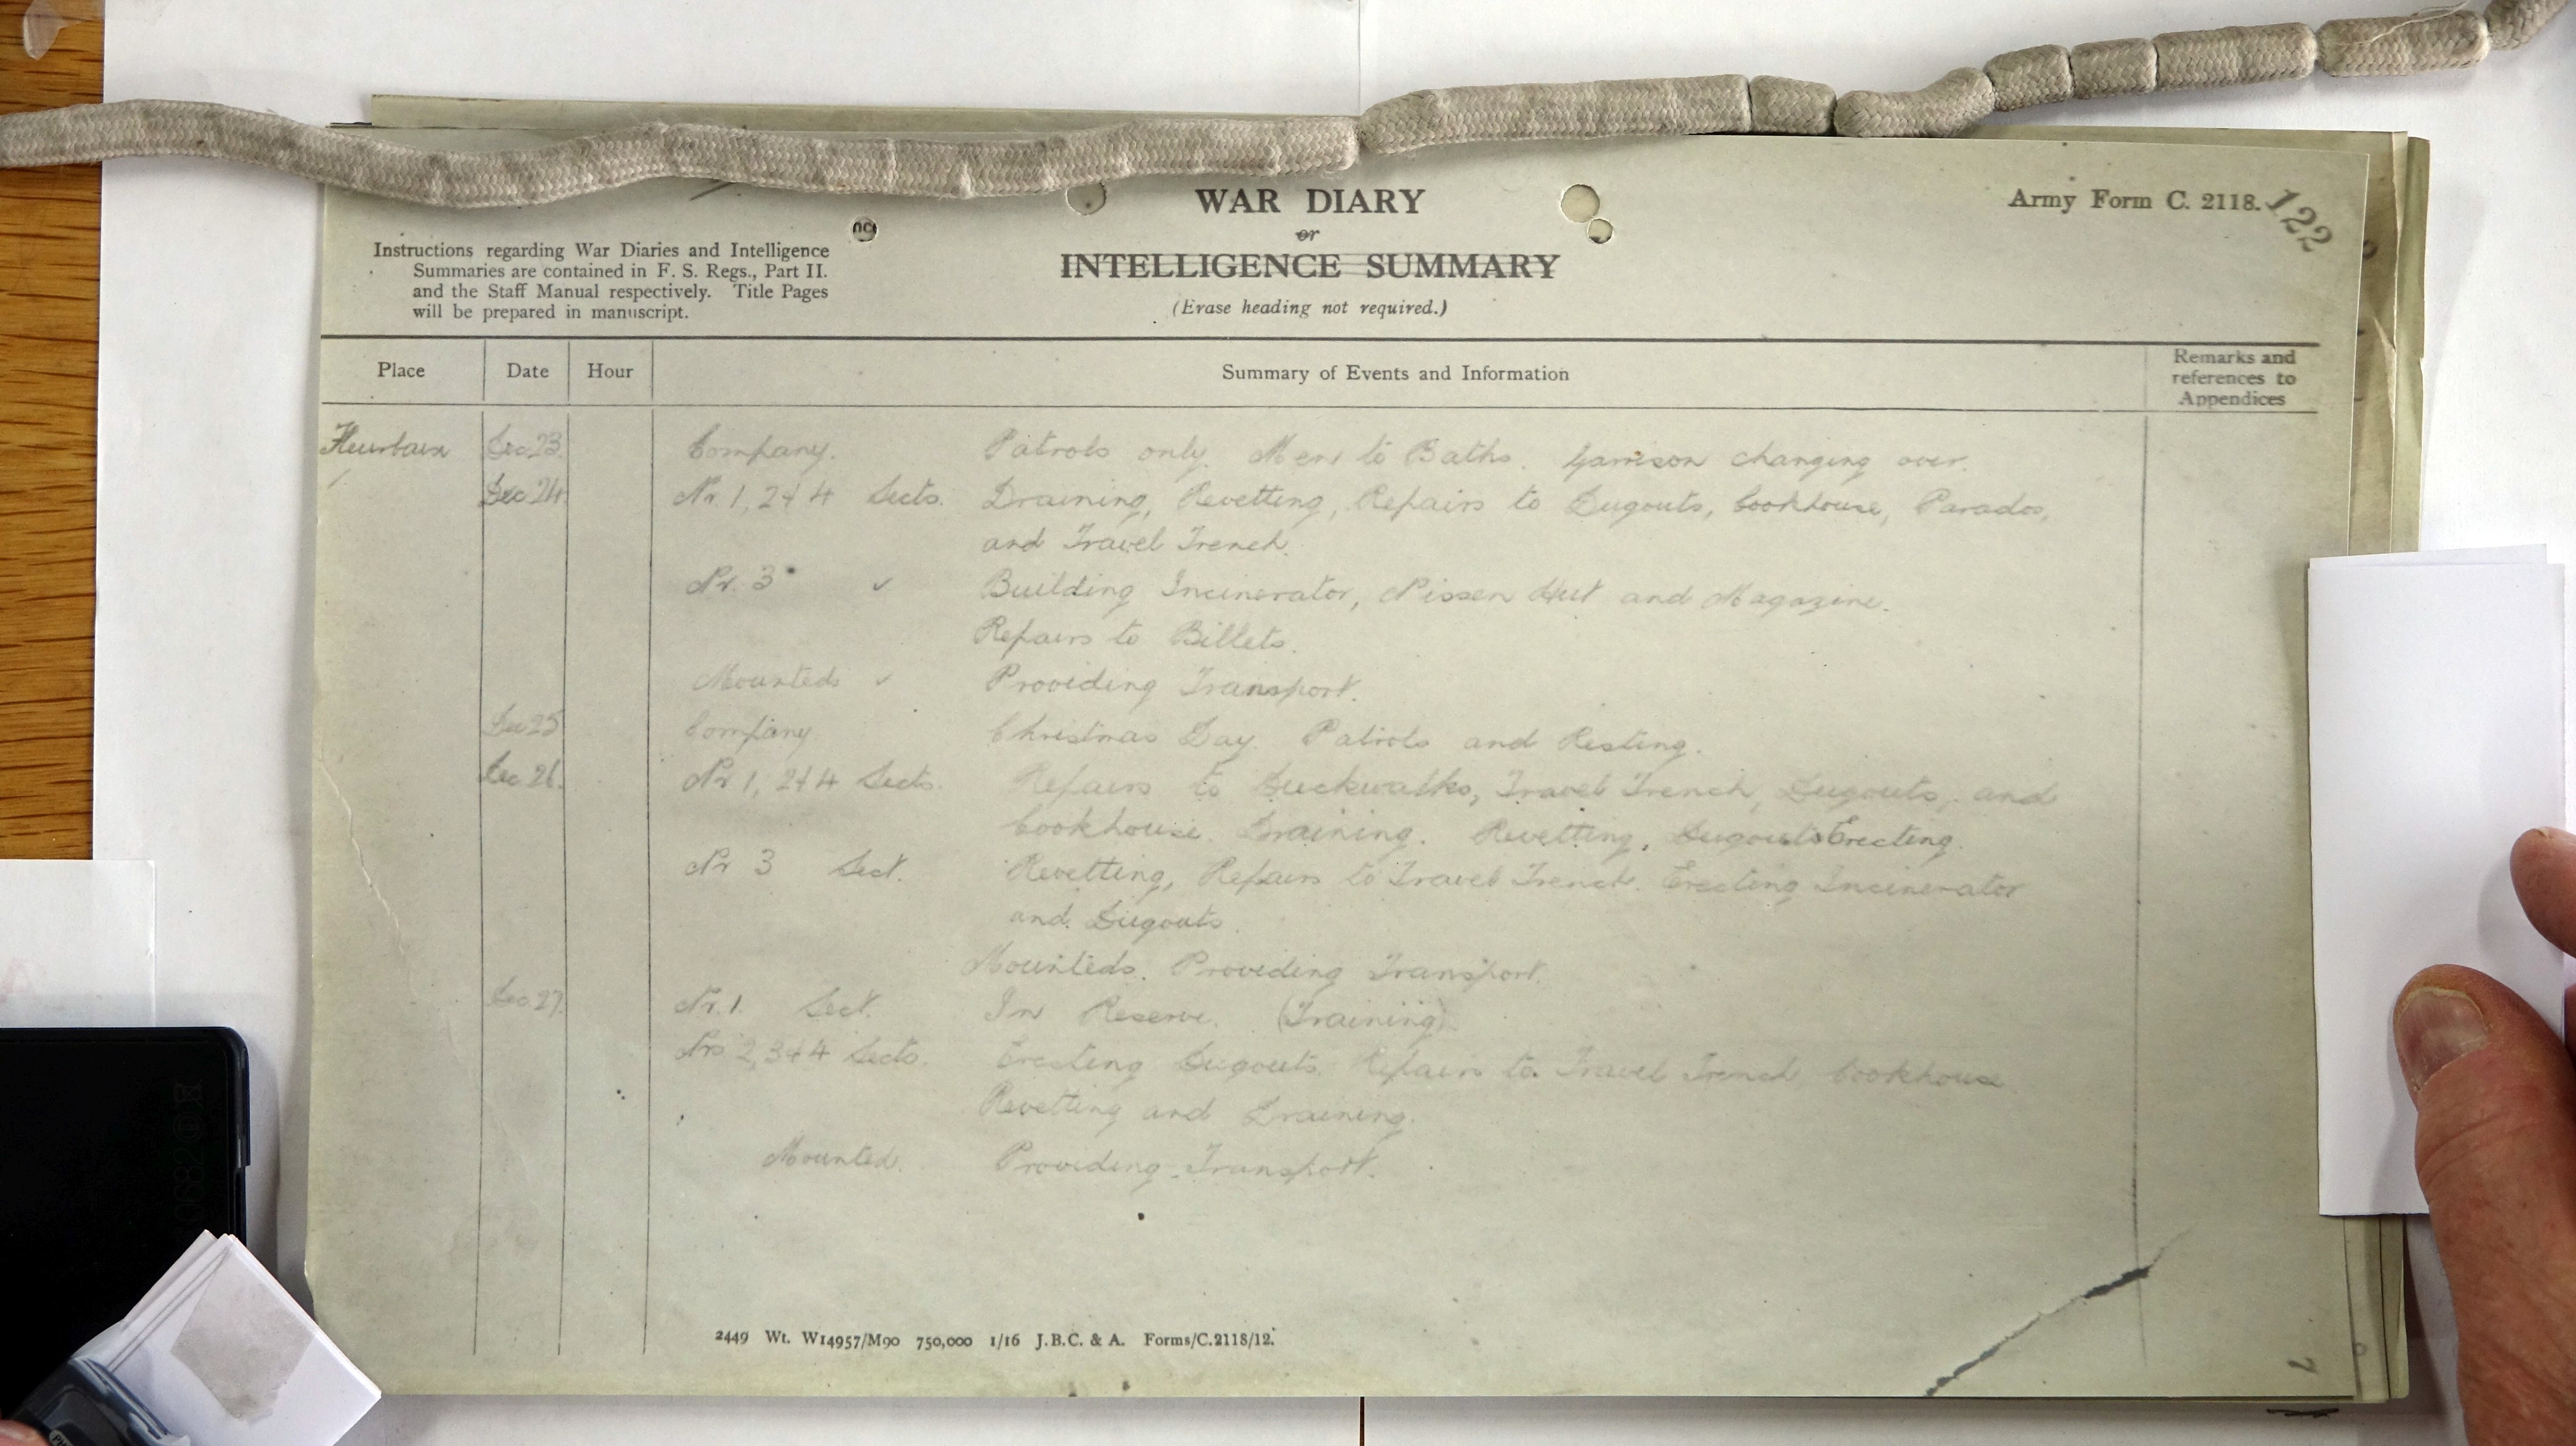 WAR DIARY
or
INTELLIGENCE SUMMARY
(Erase heading not required.)
Army Form C. 2118.
122
Instructions regarding War Diaries and Intelligence
Summaries are contained in F. S. Regs., Part II.
and the Staff Manual respectively. Title Pages
will be prepared in manuscript.
Place Date Hour Summary of Events and Information Remarks and references to Appendices
Fleurbaix Dec 23. Company. Patrols only. Men to Baths. Garrison changing over.
Dec 24 Nr. 1, 2 & 4 Sects. Draining, Revetting, Repairs to Dugouts, Cookhouse, Parados,
and Travel Trench.
Nr. 3 Building Incinerator, Nissen Hut and Magazine.
Repairs to Billets.
Mounteds Providing Transport.
Dec 25 Company Christmas Day. Patrols and Resting.
Dec 26. Nr 1, 2 & 4 Sects. Repairs to Duckwalks, Travel Trench, Dugouts, and
Cookhouse. Draining. Revetting, Dugouts Erecting.
Nr 3 Sect. Revetting, Repairs to Travel Trench. Erecting Incinerator
and Dugouts.
Mounteds. Providing Transport.
Dec 27. Nr. 1. Sect. In Reserve. (Training)
Nrs 2, 3 & 4 Sects. Erecting Dugouts. Repairs to Travel Trench, Cookhouse
Revetting and Draining.
Mounted. Providing Transport.
2449 Wt. W14957/M90 750,000 1/16 J.B.C. & A. Forms/C.2118/12.
7